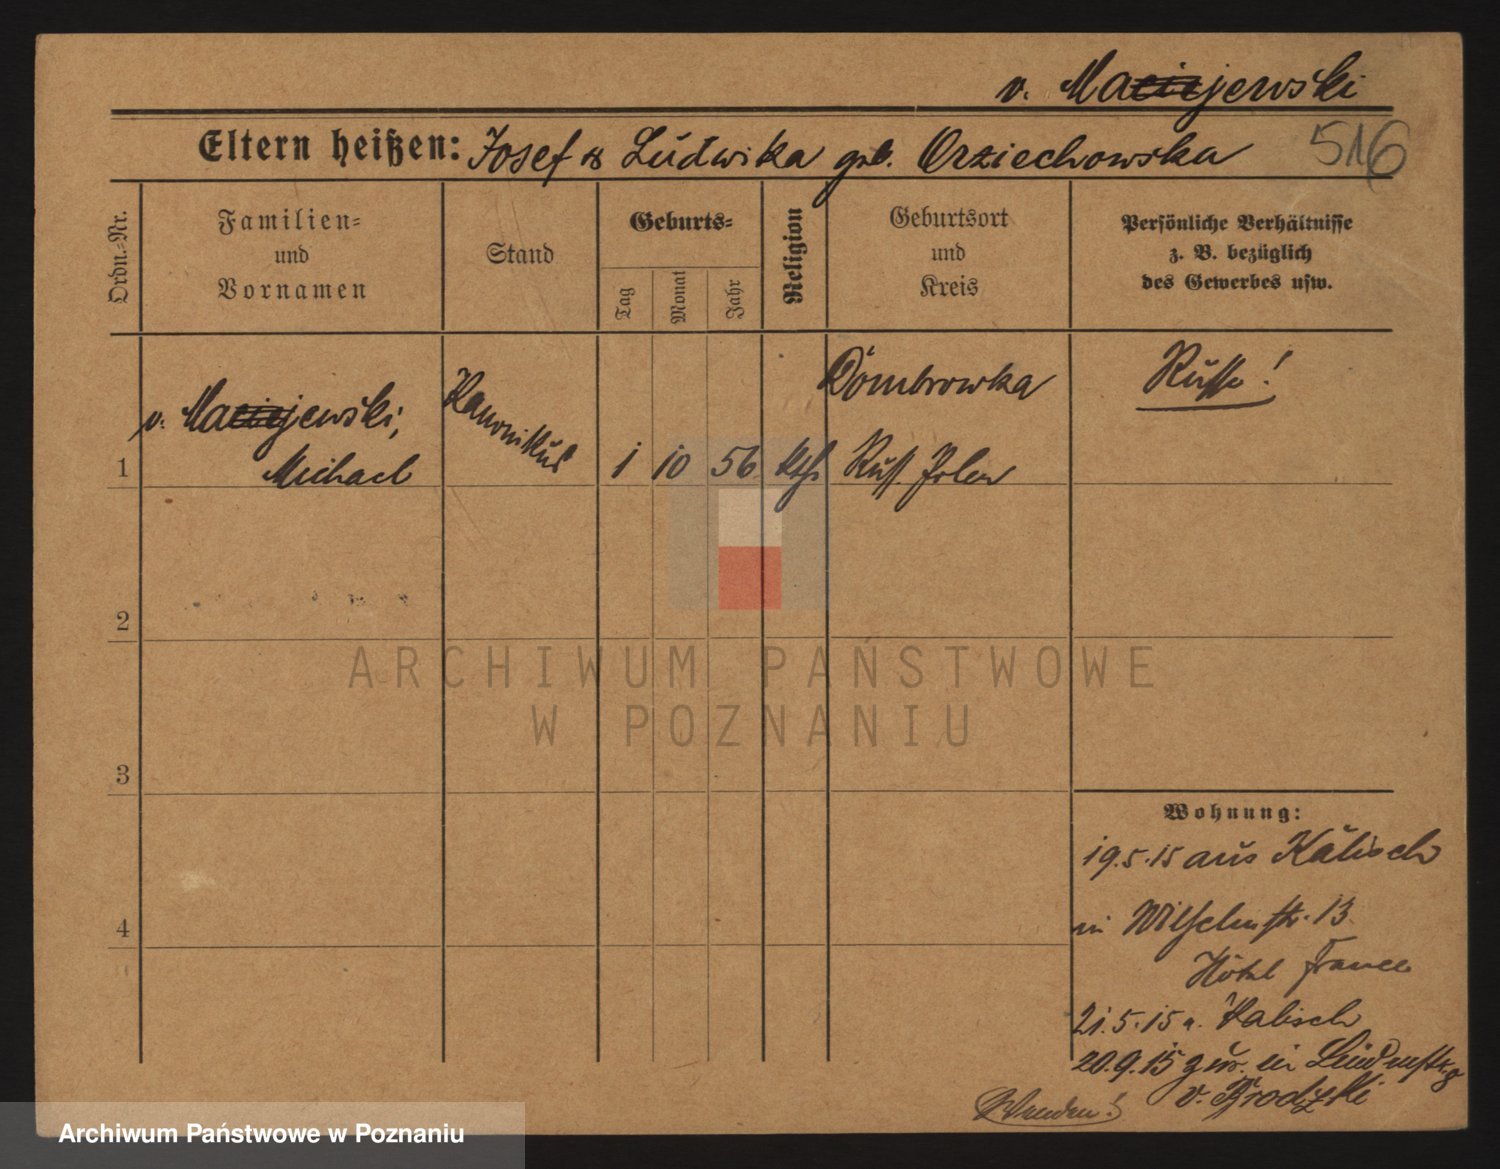 v. Maciejewski
Eltern heißen: Josef & Ludwika geb. Orziechowska
516
Ordn.-Nr.
Familien-
und
Vornamen
Stand
Geburts-
Tag
Monat
Jahr
Religion
Geburtsort
und
Kreis
Persönliche Verhältnisse
z. B. bezüglich
des Gewerbes usw.
1
v. Maciejewski,
Michael
Kanonikus
1 10 56 kth
Dombrowka
Russ. Polen
Russe!
2
3
4
ARCHIWUM PAŃSTWOWE
W POZNANIU
Wohnung:
19.5.15 aus Kalisch
in Wilhelmstr. 13
Hôtel France
21.5.15 n. Kalisch
20.9.15 zur. in
v. Brodzki
Wenden!
Archiwum Państwowe w Poznaniu